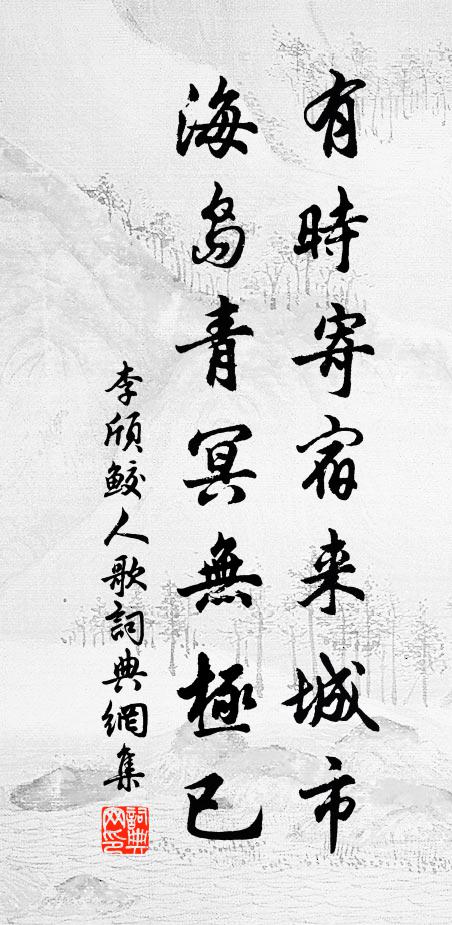 有時寄宿来城市
海島青冥無極已
李頎鮫人歌詞典網集
詞典網印